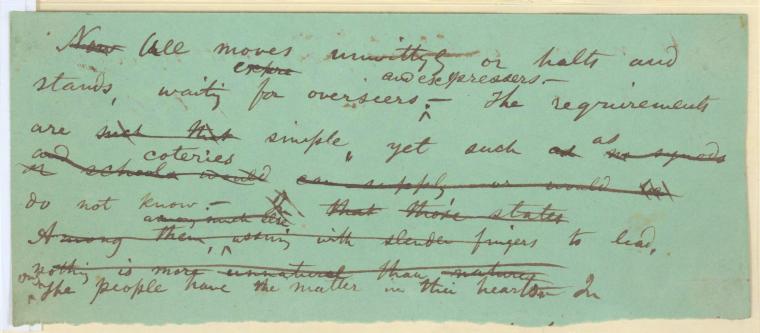 Now All moves unwittyly or halts and
expre and expressers.—
stands, waiting for overseers.— The requirements
are such that simple, yet such as as
and coteries
or schools would can supply nor would
do not know.— that those states
among much
Among them, assuming with slender fingers to lead,
nothing is more unnatural than nature
The people have the matter in their hearts In